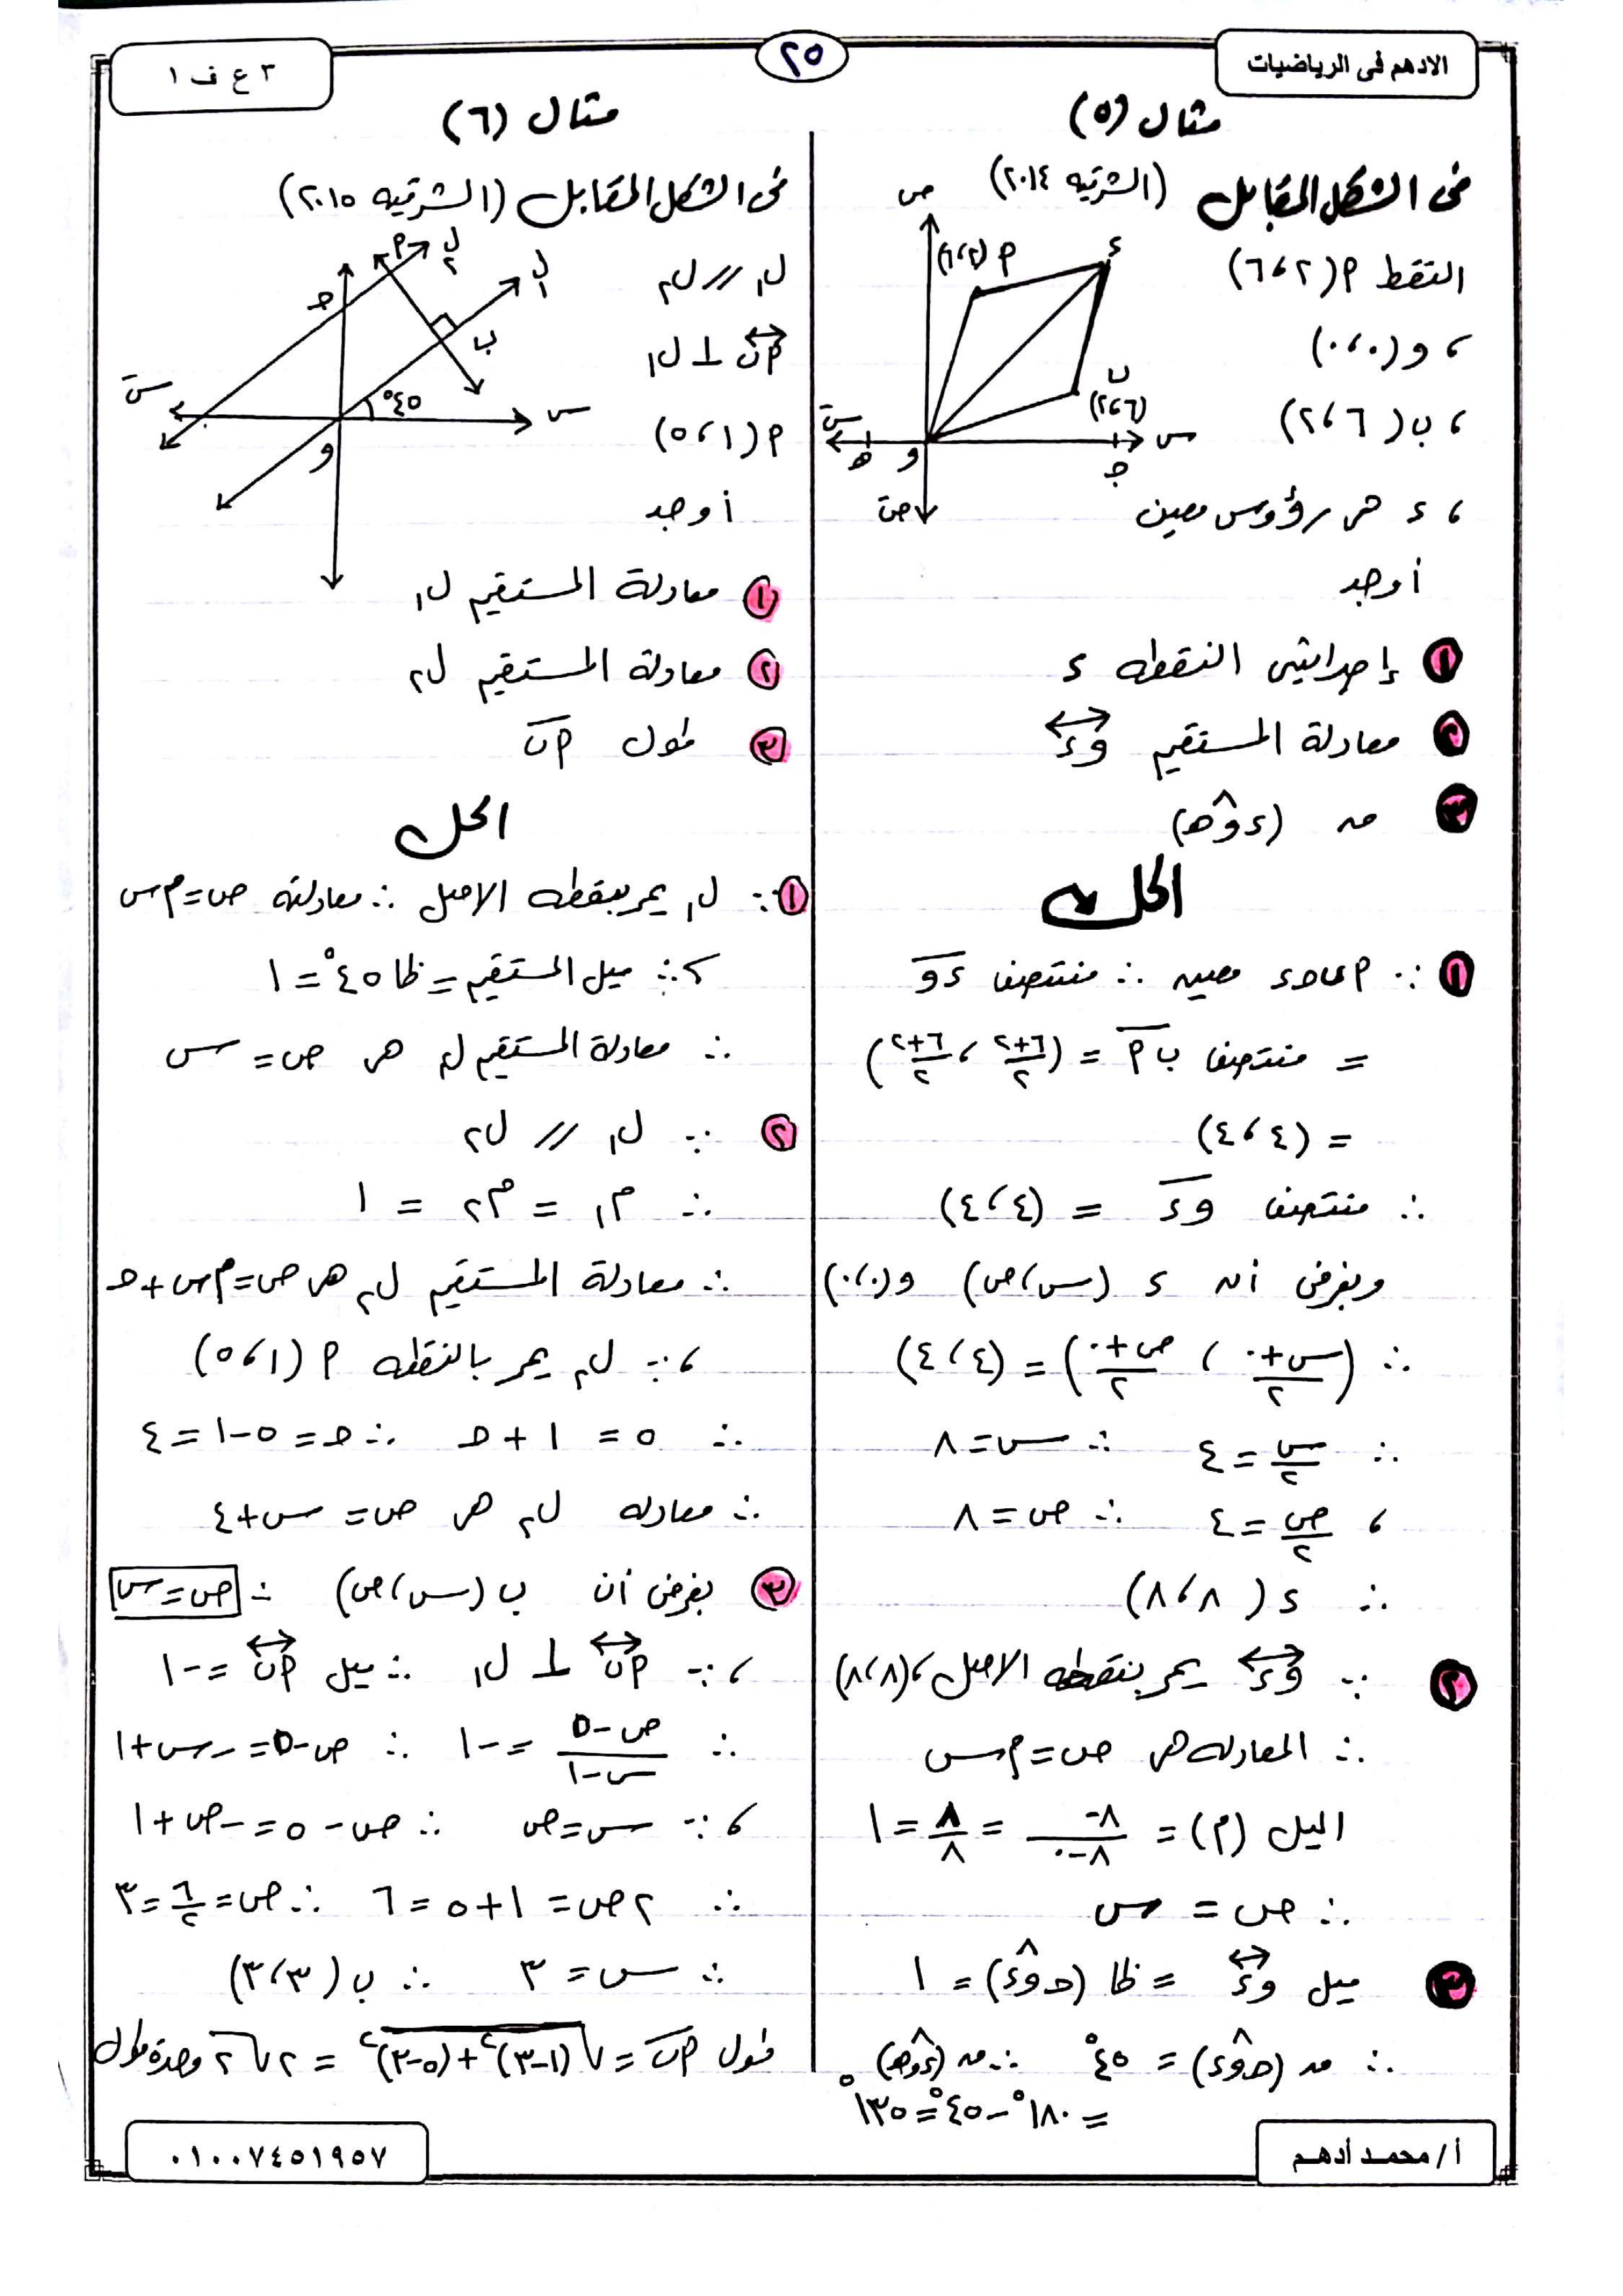 الادهم فى الرياضيات
٢٥
٣ ع ف ١
مثال (٥)
فى الشكل المقابل (الشرقيه ٢٠١٤)
النقط م (٢، ٦)
، و (٠، ٠)
، ب (٦، ٢)
، ء هى رؤوس معين
أوجد
ص
م (٢، ٦)
ء
ب
(٦، ٢)
سَ
ه
و
ج
س
صَ
١ إحداثيى النقطه ء
٢ معادلة المستقيم وء
٣ ق (ء و ه)
الحل
١ ∵ م ب و ء معين ∴ منتصف ء و
= منتصف ب م = (٢+٦/٢ ، ٦+٢/٢)
= (٤، ٤)
∴ منتصف و ء = (٤، ٤)
وبفرض أن ء (س، ص) و (٠، ٠)
∴ (س+٠/٢ ، ص+٠/٢) = (٤، ٤)
∴ س/٢ = ٤ ∴ س = ٨
، ص/٢ = ٤ ∴ ص = ٨
∴ ء (٨، ٨)
٢ ∵ وء يمر بنقطه الاصل، (٨، ٨)
∴ المعادله هى ص = م س
الميل (م) = ٨-٠/٨-٠ = ٨/٨ = ١
∴ ص = س
٣ ميل وء = ظا (حـ و ء) = ١
∴ ق (حـ و ء) = ٤٥° ∴ ق (ء و ه)
= ١٨٠° - ٤٥° = ١٣٥°
مثال (٦)
فى الشكل المقابل (الشرقيه ٢٠١٥)
ل١ // ل٢
م ب ⊥ ل١
م (١، ٥)
أوجد
م
ل٢
ل١
حـ
ب
٤٥°
سَ
س
و
١ معادلة المستقيم ل١
٢ معادلة المستقيم ل٢
٣ طول م ب
الحل
١ ∵ ل١ يمر بنقطه الاصل ∴ معادلته ص = م س
، ∵ ميل المستقيم = ظا ٤٥° = ١
∴ معادلة المستقيم ل١ هى ص = س
٢ ∵ ل١ // ل٢
∴ م١ = م٢ = ١
∴ معادلة المستقيم ل٢ هى ص = م س + حـ
، ∵ ل٢ يمر بالنقطه م (١، ٥)
∴ ٥ = ١ + حـ ∴ حـ = ٥ - ١ = ٤
∴ معادله ل٢ هى ص = س + ٤
٣ بفرض أن ب (س، ص) ∴ ص = س
، ∵ م ب ⊥ ل١ ∴ ميل م ب = -١
∴ ص-٥/س-١ = -١ ∴ ص - ٥ = -س + ١
، ∵ س = ص ∴ ص - ٥ = -ص + ١
∴ ٢ص = ١ + ٥ = ٦ ∴ ص = ٦/٢ = ٣
∴ س = ٣ ∴ ب (٣، ٣)
طول م ب = √(١-٣)² + (٥-٣)² = ٢√٢ وحدة طول
أ / محمد أدهم
٠١٠٠٧٤٥١٩٥٧